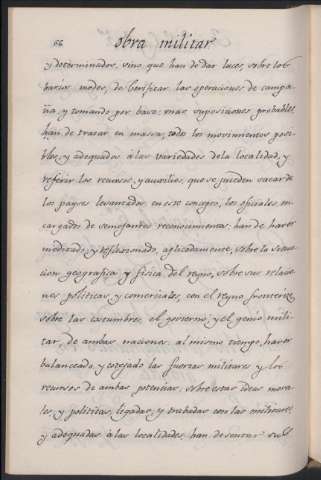 66 obra militar
y determinados, sino que han de dar luces, sobre los
varios modos, de berificar las operacions de campa-
ña, y tomando por base mas suposiciones probables
han de trazar en massa, todos los movimientos posi-
bles, y adequados â las variedades de la localidad, y
referir los recursos, y auxilios, que se pueden sacar de
los payses levantados; en este concepto, los oficiales en-
cargados de semejantes reconocimientos han de haver
meditado, y reflexionado, aplicadamente, sobre la situa-
cion geografica y fisica del reyno, sobre sus relacio-
nes politicas y comerciales, con el reyno fronterizo
sobre las costumbres, el govierno, y el genio mili-
tar, de ambas naciones, al mismo tiempo, haver
balanceado, y cotejado las fuerzas militares y los
recursos de ambas potencias, sobre estas ideas mora-
les, y politicas, ligadas, y trabadas con las militares
y adequadas â las localidades, han de sentar sus